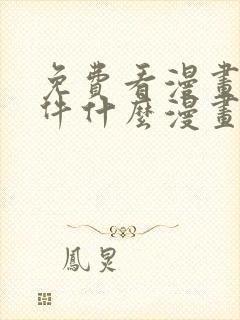 免費看漫畫
件什麼漫畫
鳳炅